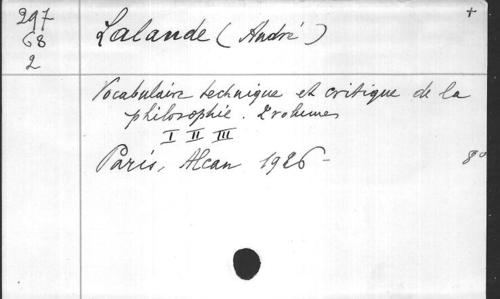 297
68
2
Lalande (André)
+
Vocabulaire technique et critique de la
philosophie. 2 volumes
I II III
Paris, Alcan 1926-
8°